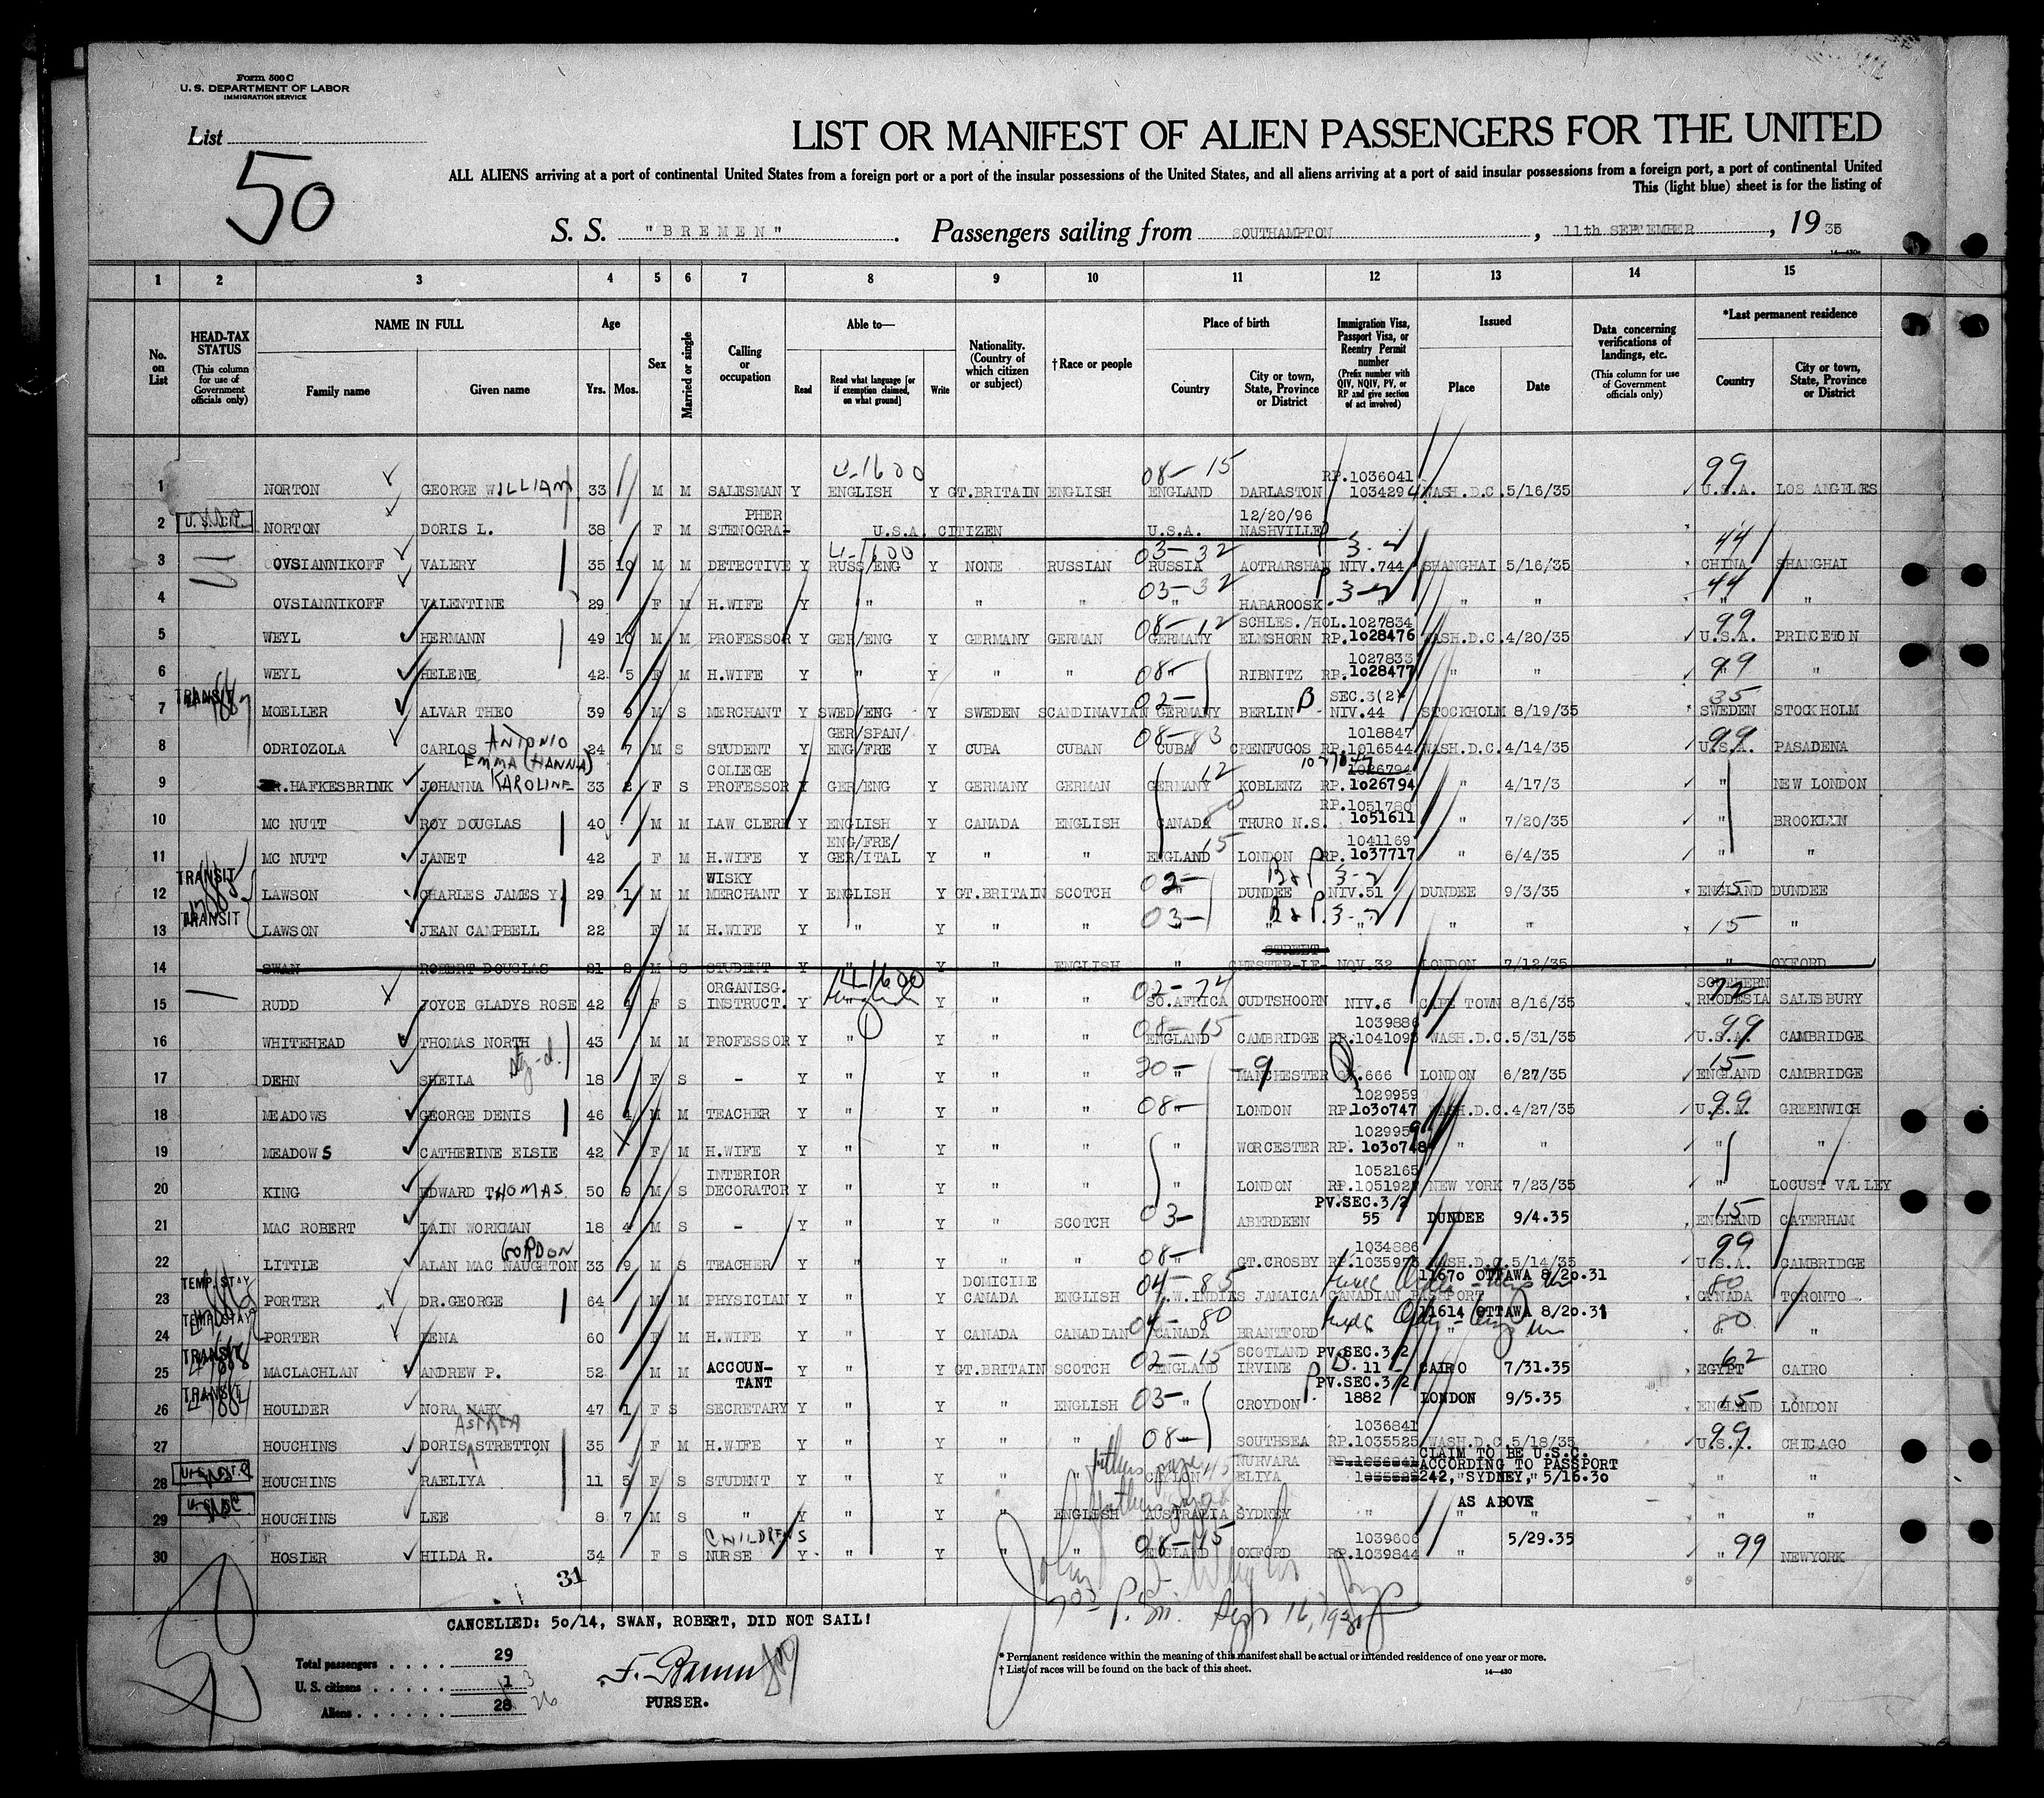 Form 500 C
U. S. DEPARTMENT OF LABOR
IMMIGRATION SERVICE
List
50
LIST OR MANIFEST OF ALIEN PASSENGERS FOR THE UNITED
ALL ALIENS arriving at a port of continental United States from a foreign port or a port of the insular possessions of the United States, and all aliens arriving at a port of said insular possessions from a foreign port, a port of continental United
This (light blue) sheet is for the listing of
S. S. "BREMEN". Passengers sailing from SOUTHAMPTON, 11th SEPTEMBER, 1935
1 2 3 4 5 6 7 8 9 10 11 12 13 14 15
No. on List
HEAD-TAX STATUS (This column for use of Government officials only)
NAME IN FULL
Family name Given name
Age
Yrs. Mos.
Sex
Married or single
Calling or occupation
Able to—
Read Read what language [or if exemption claimed, on what ground] Write
Nationality. (Country of which citizen or subject)
†Race or people
Place of birth
Country City or town, State, Province or District
Immigration Visa, Passport Visa, or Reentry Permit number (Prefix number with QIV, NQIV, PV, or RP and give section of act involved)
Issued
Place Date
Data concerning verifications of landings, etc. (This column for use of Government officials only)
*Last permanent residence
Country City or town, State, Province or District
1 NORTON GEORGE WILLIAM 33 M M SALESMAN Y ENGLISH Y GT.BRITAIN ENGLISH 08-15 ENGLAND DARLASTON RP.1036041 1034294 WASH.D.C. 5/16/35 99 U.S.A. LOS ANGELES
2 U.S.CIT. NORTON DORIS L. 38 F M STENOGRAPHER U.S.A. CITIZEN U.S.A. 12/20/96 NASHVILLE
3 OVSIANNIKOFF VALERY 35 10 M M DETECTIVE Y RUSS/ENG Y NONE RUSSIAN 03-32 RUSSIA AOTRARSHAN NIV.744 SHANGHAI 5/16/35 44 CHINA SHANGHAI
4 OVSIANNIKOFF VALENTINE 29 F M H.WIFE Y " " " 03-32 " HABAROOSK " " " 44 " "
5 WEYL HERMANN 49 10 M M PROFESSOR Y GER/ENG Y GERMANY GERMAN 08-12 GERMANY SCHLES./HOL. ELMSHORN 1027834 RP.1028476 WASH.D.C. 4/20/35 99 U.S.A. PRINCETON
6 WEYL HELENE 42 5 F M H.WIFE Y " Y " " 08- " RIBNITZ 1027833 RP.1028477 " " 99 " "
7 TRANSIT MOELLER ALVAR THEO 39 9 M S MERCHANT Y SWED/ENG Y SWEDEN SCANDINAVIAN 02- GERMANY BERLIN SEC.3(2) NIV.44 STOCKHOLM 8/19/35 35 SWEDEN STOCKHOLM
8 ODRIOZOLA CARLOS ANTONIO 24 7 M S STUDENT Y GER/SPAN/ ENG/FRE Y CUBA CUBAN 08-83 CUBA CRENFUGOS 1018847 RP.1016544 WASH.D.C. 4/14/35 99 U.S.A. PASADENA
9 DR.HAFKESBRINK JOHANNA EMMA (HANNA) KAROLINE 33 2 F S COLLEGE PROFESSOR Y GER/ENG Y GERMANY GERMAN 12 GERMANY KOBLENZ 1026794 RP.1026794 " 4/17/3 " NEW LONDON
10 MC NUTT ROY DOUGLAS 40 M M LAW CLERK Y ENGLISH Y CANADA ENGLISH CANADA TRURO N.S. RP.1051780 1051611 " 7/20/35 " BROOKLYN
11 MC NUTT JANET 42 F M H.WIFE Y ENG/FRE/ GER/ITAL Y " " 15 ENGLAND LONDON 1041169 RP.1037717 " 6/4/35 " "
12 TRANSIT LAWSON CHARLES JAMES Y. 29 1 M M WISKY MERCHANT Y ENGLISH Y GT.BRITAIN SCOTCH 02- " DUNDEE NIV.51 DUNDEE 9/3/35 15 ENGLAND DUNDEE
13 TRANSIT LAWSON JEAN CAMPBELL 22 F M H.WIFE Y " Y " " 03- " " " " " 15 "
14 SWAN ROBERT DOUGLAS 21 2 M S STUDENT Y Y " ENGLISH " STREET CHESTER-LE- NQV.32 LONDON 7/12/35 " OXFORD
15 RUDD JOYCE GLADYS ROSE 42 4 F S ORGANISG. INSTRUCT. Y English Y " " 02-72 SO.AFRICA OUDTSHOORN NIV.6 CAPE TOWN 8/16/35 72 SOUTHERN RHODESIA SALISBURY
16 WHITEHEAD THOMAS NORTH 43 M M PROFESSOR Y " Y " " 08-15 ENGLAND CAMBRIDGE 1039886 RP.1041095 WASH.D.C. 5/31/35 99 U.S.A. CAMBRIDGE
17 DEHN SHEILA 18 F S - Y " Y " " " MANCHESTER 666 LONDON 6/27/35 15 ENGLAND CAMBRIDGE
18 MEADOWS GEORGE DENIS 46 4 M M TEACHER Y " Y " " 08- " LONDON 1029959 RP.1030747 WASH.D.C. 4/27/35 99 U.S.A. GREENWICH
19 MEADOWS CATHERINE ELSIE 42 F M H.WIFE Y " Y " " " WORCESTER 1029959 RP. 1030748 " " " "
20 KING EDWARD THOMAS 50 9 M S INTERIOR DECORATOR Y " Y " " " LONDON 1052165 RP.1051927 NEW YORK 7/23/35 " LOCUST VALLEY
21 MAC ROBERT IAIN WORKMAN 18 4 M S - Y " Y " SCOTCH 03- ABERDEEN PV.SEC.3/2 55 DUNDEE 9/4.35 15 ENGLAND CATERHAM
22 LITTLE ALAN MAC NAUGHTON GORDON 33 9 M S TEACHER Y " Y " " 08- " GT.CROSBY 1034886 RP.1035975 WASH.D.C. 5/14/35 99 U.S.A. CAMBRIDGE
23 TEMP.STAY PORTER DR.GEORGE 64 M M PHYSICIAN Y " Y DOMICILE CANADA ENGLISH 04-85 B.W.INDIES JAMAICA CANADIAN PASSPORT 11670 OTTAWA 8/20.31 80 CANADA TORONTO
24 TEMP.STAY PORTER LENA 60 F M H.WIFE Y " Y CANADA CANADIAN 04-80 CANADA BRANTFORD " 11614 OTTAWA 8/20.31 80 " "
25 TRANSIT MACLACHLAN ANDREW P. 52 M M ACCOUN- TANT Y " Y GT.BRITAIN SCOTCH 02-15 ENGLAND SCOTLAND IRVINE PV.SEC.3/2 11 CAIRO 7/31.35 62 EGYPT CAIRO
26 TRANSIT HOULDER NORA MARY 47 1 F S SECRETARY Y " Y " ENGLISH 03- " CROYDON PV.SEC.3/2 1882 LONDON 9/5.35 15 ENGLAND LONDON
27 HOUCHINS DORIS ASTREA STRETTON 35 F M H.WIFE Y " Y " " 08- SOUTHSEA 1036841 RP.1035525 WASH.D.C. 5/18/35 99 U.S.A. CHICAGO
28 HOUCHINS RAELIYA 11 5 F S STUDENT Y " Y " " CEYLON NURVARA ELIYA CLAIM TO BE U.S.C. ACCORDING TO PASSPORT 242, "SYDNEY," 5/16.30 " "
29 HOUCHINS LEE 8 7 M S " Y " Y " ENGLISH AUSTRALIA SYDNEY " AS ABOVE " " " "
30 HOSIER HILDA R. 34 F S CHILDRENS NURSE Y " Y " " 08-15 ENGLAND OXFORD 1039606 RP.1039844 " 5/29.35 " 99 NEWYORK
31
CANCELLED: 50/14, SWAN, ROBERT, DID NOT SAIL!
Total passengers 29
U. S. citizens 1 3
Aliens 28 26
PURSER.
Sept 16, 193
* Permanent residence within the meaning of this manifest shall be actual or intended residence of one year or more.
† List of races will be found on the back of this sheet.
14—430